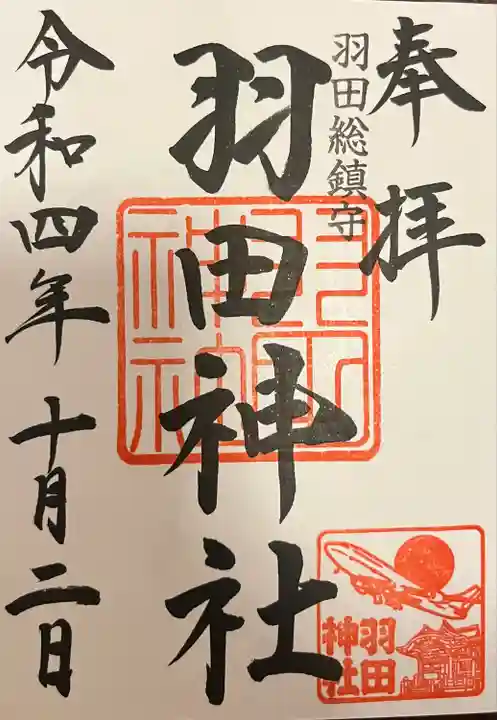 奉拝
羽田総鎮守
羽田神社
令和四年十月二日
羽田
神社